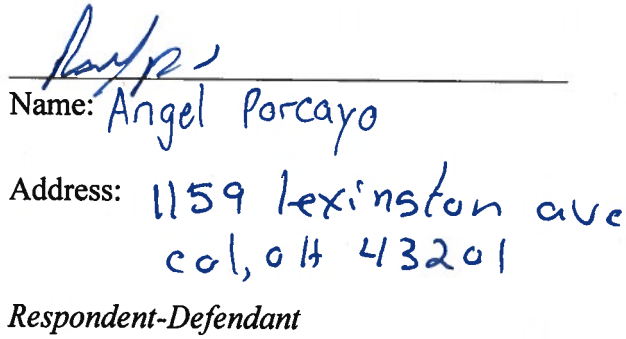 Name: Angel Porcayo
Address: 1159 lexinston ave
col, oH 43201
Respondent-Defendant